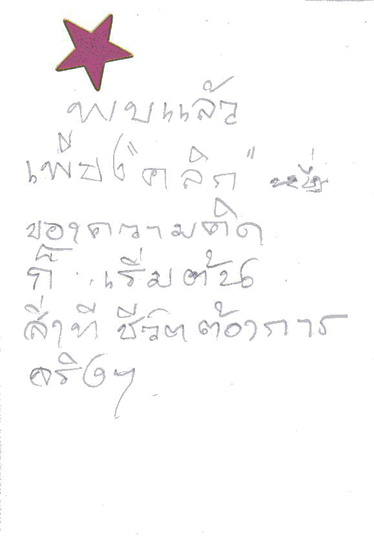 พบแล้ว
เพียง "คลิก" หนึ่ง
ของความคิด
ก็ ..เริ่มต้น
สิ่งที่ ชีวิตต้องการ
จริงๆ